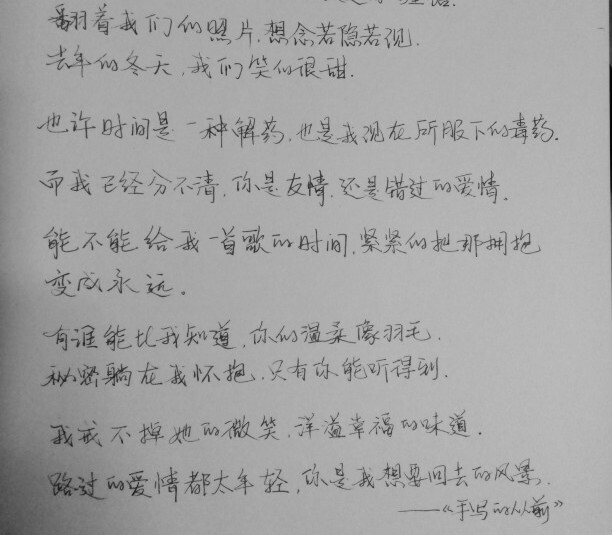 翻着我们的照片,想念若隐若现.
去年的冬天,我们笑的很甜.
也许时间是一种解药,也是我现在所服下的毒药.
而我已经分不清,你是友情,还是错过的爱情。
能不能给我一首歌的时间,紧紧的把那拥抱
变成永远。
有谁能比我知道,你的温柔像羽毛.
秘密躺在我怀抱,只有你能听得到.
我戒不掉她的微笑,洋溢幸福的味道.
路过的爱情都太年轻,你是我想要回去的风景.
——《手写的从前》